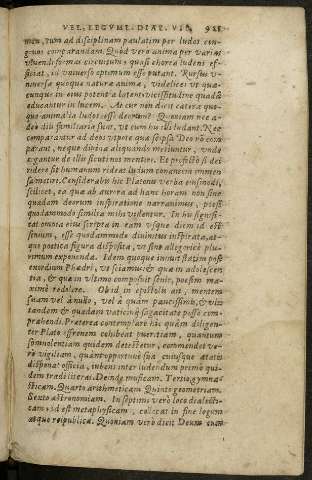 VEL LEGVM. DIAL. VII. 921
men, tum ad disciplinam paulatim per ludos con-
gruos comparandam. Quòd verò anima per varias
viuendi formas circuitum quasi chorea ludens ef-
ficiat, id vniuerso optimum esse putant. Rursus v-
niuersa quoque naturæ anima, videlicet vt quæ-
cunque in eius potentia latent vicissitudine quadã
educantur in lucem. At cur non dicit cætera quo-
que animalia ludos esse deorum? Quoniam nec a-
deo dijs familiaria sunt, vt cum his illudant. Nec
comparantur ad deos vipere quia sępe Deo rõ com
parant, neque diuina aliquando mentiuntur, vnde
ergantur de illis sicut nos mentiri. Et profectò si dei
ridere sit humanum rideas ludum conanem immen
sa metiri. Considerabis hic Platonis verba eiusmodi,
scilicet, ea quæ ab aurora ad hanc horam non sine
quadam deorum inspiratione narrauimus, poësi
quodammodo similia mihi videntur. In his signifi-
cat omnia eius scripta in eam vsque diem id est
senium, esse quodammodo diuinitus inspirata, at-
que poetica figura disposita, vt sint allegoricè plu-
rimum exponenda. Idem quoque innuit statim post
exordium Phædri, vt sciamus & quæ in adolescen-
tia, & quæ in vltimo composuit senio, poësim ma-
ximè redolere. Obijd in epistolis ait, mentem
suam vel à nullo, vel à quàm paucissimis, & vix
tandem & quadam vaticinij sagacitate posse com-
prahendi. Præterea contemplare hîc quàm diligen-
ter Plato offrenem cohibeat inertiam, quantum
somnolentiam quidem detestetur, commendet ve-
rò vigiliam, quàm opportunè sua cuiusque ætatis
disponat officia, iubens inter ludendum primo qui-
dem tradi literas. Deinde musicam. Tertio gymna-
sticam. Quarto arithmeticam. Quinto geometriam.
Sexto astronomiam. In septimo verò loco dialecti-
cam, id est metaphysicam, collocat in fine legum
atque reipublicæ. Quoniam verò dicit Deum cum